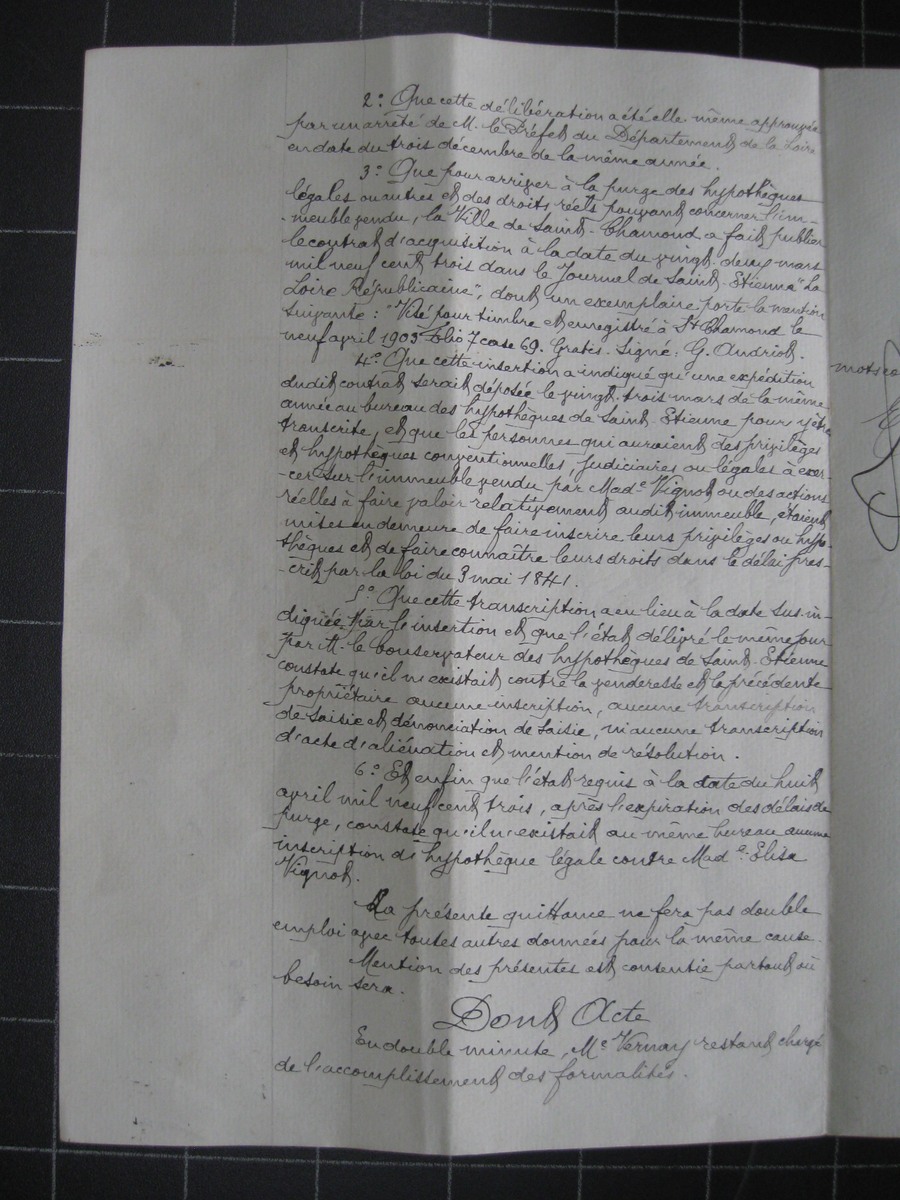 2° Que cette délibération a été elle même approuvée
par un arrêté de M. le Préfet du Département de la Loire
en date du trois décembre de la même année.
3° Que pour arriver à la purge des hypothèques
légales ou autres et des droits réels pouvant concerner l'im-
-meuble vendu, la Ville de Saint-Chamond a fait publier
le contrat d'acquisition à la date du vingt-deux mars
mil neuf cent trois dans le Journal de Saint-Etienne "La
Loire Républicaine", dont un exemplaire porte la mention
suivante : "Visé pour timbre et enregistré à St Chamond le
neuf avril 1903 Folio 7 case 69. Gratis. Signé: G. Audriot.
4° Que cette insertion a indiqué qu'une expédition
dudit contrat serait déposée le vingt-trois mars de la même
année au bureau des hypothèques de Saint-Etienne pour y être
transcrite, et que les personnes qui auraient des privilèges
et hypothèques conventionnelles, judiciaires ou légales à exer-
-cer sur l'immeuble vendu par Made Vignot ou des actions
réelles à faire valoir relativement audit immeuble, étaient
mises en demeure de faire inscrire leurs privilèges ou hypo-
thèques et de faire connaître leurs droits dans le délai pres-
-crit par la loi du 3 mai 1841.
5° Que cette transcription a eu lieu à la date sus-in-
diquée par l'insertion et que l'état délivré le même jour
par M. le Conservateur des hypothèques de Saint-Etienne
constate qu'il n'existait contre la venderesse et la précédente
propriétaire aucune inscription, aucune transcription
de saisie et dénonciation de saisie, ni aucune transcription
d'acte d'aliénation et mention de résolution.
6° Et enfin que l'état requis à la date du huit
avril mil neuf cent trois, après l'expiration des délais de
purge, constate qu'il n'existait au même bureau aucune
inscription d'hypothèque légale contre Made Elisa
Vignot.
La présente quittance ne fera pas double
emploi avec toutes autres données pour la même cause.
Mention des présentes est consentie partout où
besoin sera.
Dont Acte
En double minute, Me Vernay restant chargé
de l'accomplissement des formalités.
mots